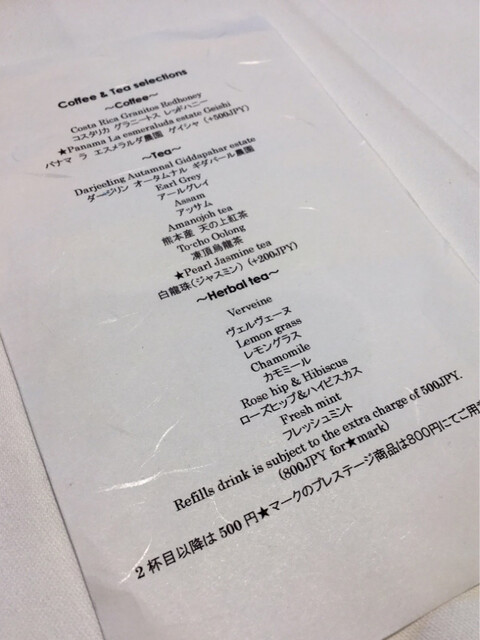 Coffee & Tea selections
～Coffee～
Costa Rica Granitos Redhoney
コスタリカ グラニートス レッドハニー
★Panama La esmeraluda estate Geishi (+500JPY)
パナマ ラ エスメラルダ農園 ゲイシャ
～Tea～
Darjeeling Autamnal Giddapahar estate
ダージリン オータムナル ギダパール農園
Earl Grey
アールグレイ
Assam
アッサム
Amanojoh tea
熊本産 天の上紅茶
To-cho Oolong
凍頂烏龍茶
★Pearl Jasmine tea
白龍珠(ジャスミン) (+200JPY)
～Herbal tea～
Verveine
ヴェルヴェーヌ
Lemon grass
レモングラス
Chamomile
カモミール
Rose hip & Hibiscus
ローズヒップ&ハイビスカス
Fresh mint
フレッシュミント
Refills drink is subject to the extra charge of 500JPY.
(800JPY for★mark)
2 杯目以降は 500 円★マークのプレステージ商品は800円にてご用意